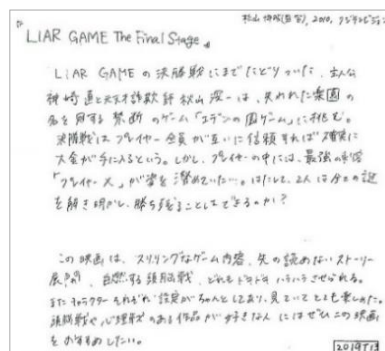 松山博昭(監督), 2010, フジテレビジョン
『LIAR GAME The Final Stage』
LIAR GAMEの決勝戦にまでたどりついた、主人公
神崎直と天才詐欺師秋山深一は、失われた楽園の
名を冠する禁断のゲーム「エデンの園ゲーム」に挑む。
決勝戦はプレイヤー全員が互いに信頼すれば確実に
大金が手に入るという。しかし、プレイヤーの中には、最強の刺客
「プレイヤーX」が姿を潜めていた…。はたして、2人は全ての謎
を解き明かし、勝ち残ることはできるのか?
この映画は、スリリングなゲーム内容、先の読めないストーリー
展開、白熱する頭脳戦、どれもドキドキハラハラさせられる。
またキャラクターそれぞれ設定がちゃんとしており、見ていてとても楽しめた。
頭脳戦や心理戦のある作品が好きな人にはぜひこの映画
をおすすめしたい。